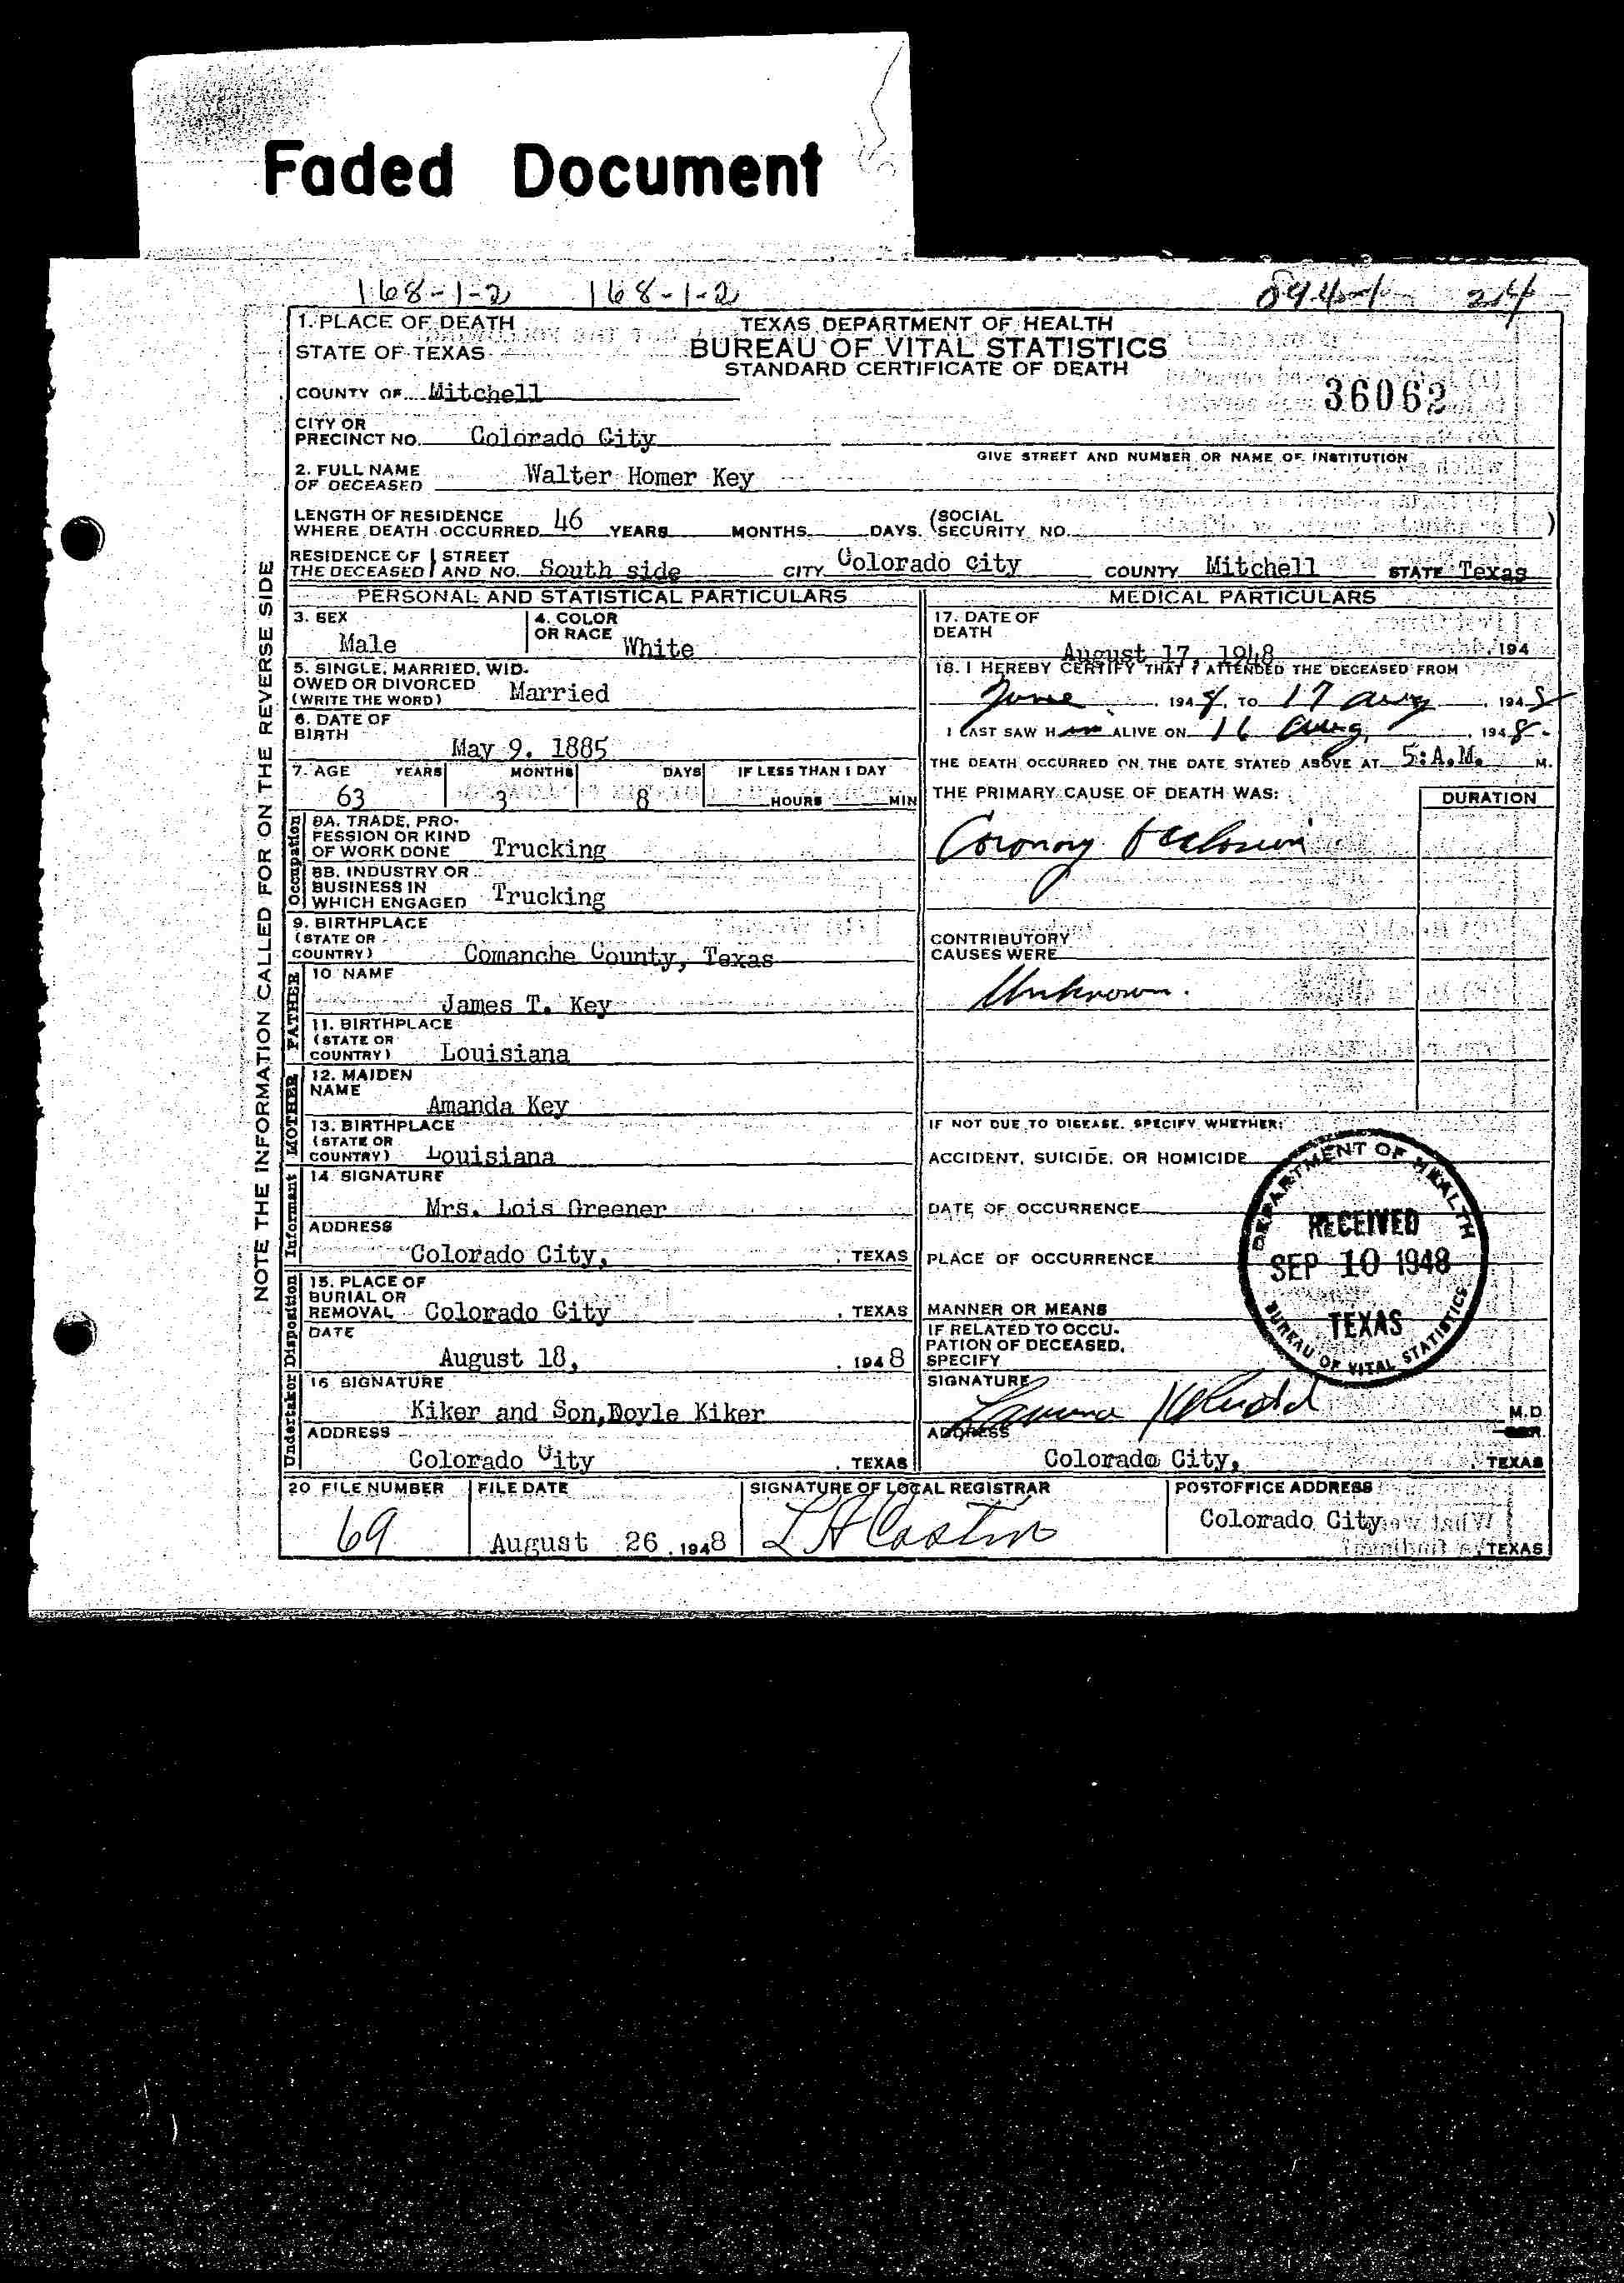 Faded Document
168-1-2 168-1-2
1. PLACE OF DEATH
STATE OF TEXAS
TEXAS DEPARTMENT OF HEALTH
BUREAU OF VITAL STATISTICS
STANDARD CERTIFICATE OF DEATH
COUNTY OF Mitchell
36062
CITY OR
PRECINCT NO. Colorado City
GIVE STREET AND NUMBER OR NAME OF INSTITUTION
2. FULL NAME
OF DECEASED Walter Homer Key
LENGTH OF RESIDENCE
WHERE DEATH OCCURRED 46 YEARS MONTHS DAYS. (SOCIAL
SECURITY NO. )
RESIDENCE OF THE DECEASED STREET AND NO. South side CITY Colorado City COUNTY Mitchell STATE Texas
NOTE THE INFORMATION CALLED FOR ON THE REVERSE SIDE
PERSONAL AND STATISTICAL PARTICULARS
3. SEX
Male
4. COLOR
OR RACE White
5. SINGLE, MARRIED, WID-
OWED OR DIVORCED
(WRITE THE WORD) Married
6. DATE OF
BIRTH
May 9. 1885
7. AGE YEARS MONTHS DAYS IF LESS THAN 1 DAY
63 3 8 HOURS MIN
Occupation
8A. TRADE, PRO-
FESSION OR KIND
OF WORK DONE Trucking
8B. INDUSTRY OR
BUSINESS IN
WHICH ENGAGED Trucking
9. BIRTHPLACE
(STATE OR
COUNTRY) Comanche County, Texas
FATHER
10 NAME
James T. Key
11. BIRTHPLACE
(STATE OR
COUNTRY) Louisiana
MOTHER
12. MAIDEN
NAME
Amanda Key
13. BIRTHPLACE
(STATE OR
COUNTRY) Louisiana
Informant
14. SIGNATURE
Mrs. Lois Greener
ADDRESS
Colorado City, , TEXAS
Disposition
15. PLACE OF
BURIAL OR
REMOVAL Colorado City , TEXAS
DATE
August 18, , 1948
Undertaker
16 SIGNATURE
Kiker and Son,Doyle Kiker
ADDRESS
Colorado City , TEXAS
MEDICAL PARTICULARS
17. DATE OF
DEATH
August 17, 1948 , 194
18. I HEREBY CERTIFY THAT I ATTENDED THE DECEASED FROM
June , 1948, TO 17 Aug , 1948
I LAST SAW Him ALIVE ON 16 Aug, , 1948.
THE DEATH OCCURRED ON THE DATE STATED ABOVE AT 5:A.M. M.
THE PRIMARY CAUSE OF DEATH WAS: DURATION
Coronary Occlusion
CONTRIBUTORY
CAUSES WERE
Unknown.
IF NOT DUE TO DISEASE, SPECIFY WHETHER:
ACCIDENT, SUICIDE, OR HOMICIDE
DATE OF OCCURRENCE
PLACE OF OCCURRENCE
MANNER OR MEANS
IF RELATED TO OCCU-
PATION OF DECEASED,
SPECIFY
DEPARTMENT OF HEALTH
RECEIVED
SEP 10 1948
TEXAS
BUREAU OF VITAL STATISTICS
SIGNATURE
M.D.
ADDRESS
Colorado City, , TEXAS
20 FILE NUMBER
69
FILE DATE
August 26, 1948
SIGNATURE OF LOCAL REGISTRAR
POSTOFFICE ADDRESS
Colorado City
, TEXAS